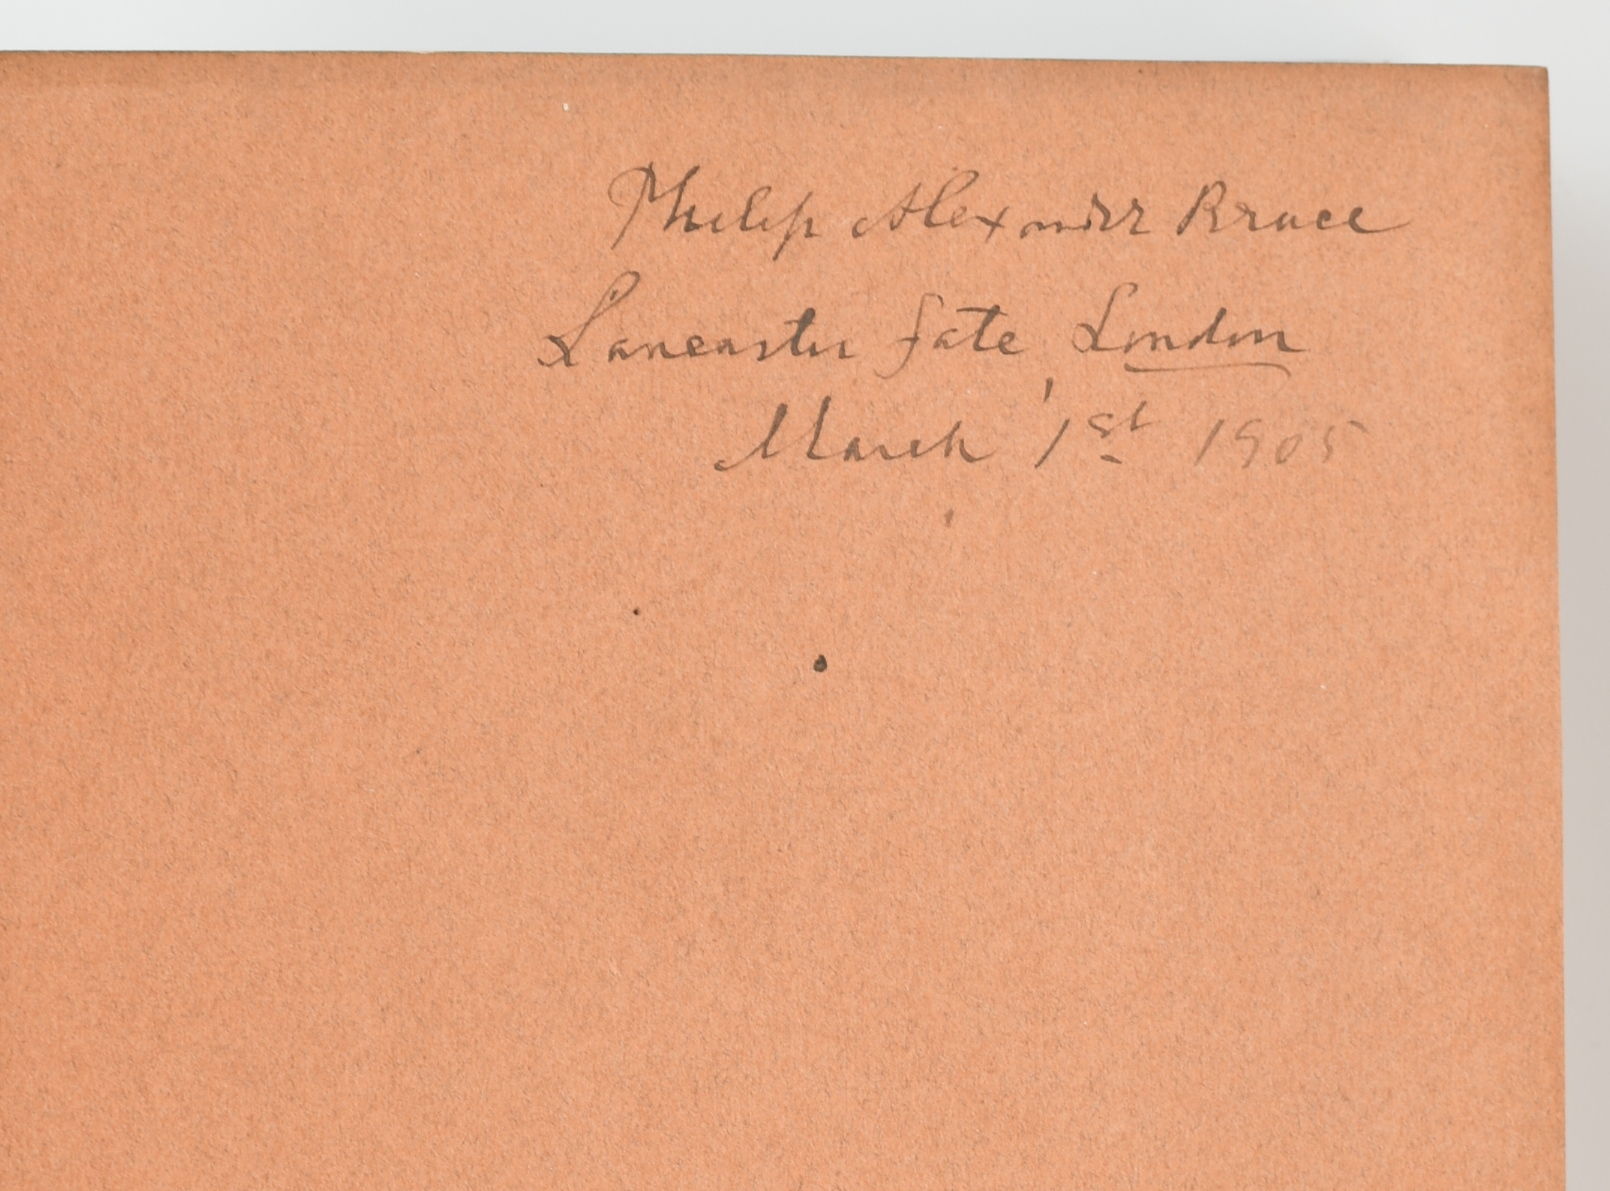 Philip Alexander Bruce
Lancaster Gate, London
March 1st 1905